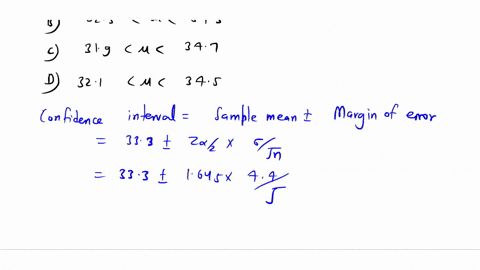 B)
C) 31.9 < μ < 34.7
D) 32.1 < μ < 34.5
Confidence interval = Sample mean ± Margin of error
= 33.3 ± Zα/2 × σ/√n
= 33.3 ± 1.645 × 4.4/√